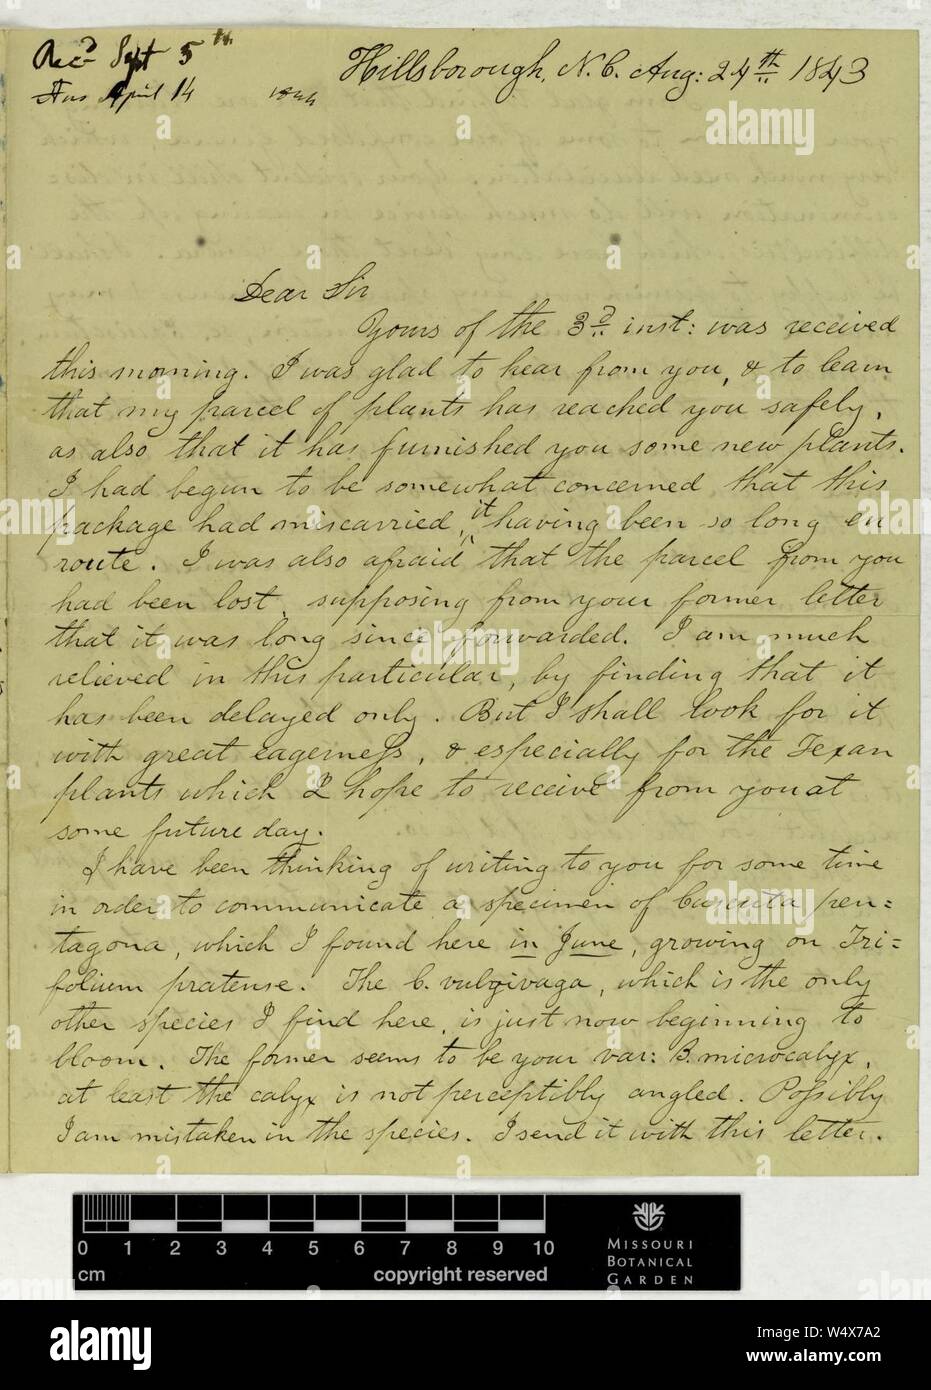 Rec.d Sept 5th.
Ans April 14 1844
Hillsborough, N.C. Aug: 24th 1843
Dear Sir
Yours of the 3d inst: was received
this morning. I was glad to hear from you, & to learn
that my parcel of plants has reached you safely,
as also that it has furnished you some new plants.
I had begun to be somewhat concerned that this
package had miscarried, it having been so long en
route. I was also afraid that the parcel from you
had been lost, supposing from your former letter
that it was long since forwarded. I am much
relieved in this particular, by finding that it
has been delayed only. But I shall look for it
with great eagerness, & especially for the Texan
plants which I hope to receive from you at
some future day.
I have been thinking of writing to you for some time
in order to communicate a specimen of Cuscuta pen=
tagona, which I found here in June, growing on Tri=
folium pratense. The C. vulgivaga, which is the only
other species I find here, is just now beginning to
bloom. The former seems to be your var: B. microcalyx,
at least the calyx is not perceptibly angled. Possibly
I am mistaken in the species. I send it with this letter.
0 1 2 3 4 5 6 7 8 9 10
cm copyright reserved
MISSOURI
BOTANICAL
GARDEN
alamy
Image ID: W4X7A2
www.alamy.com